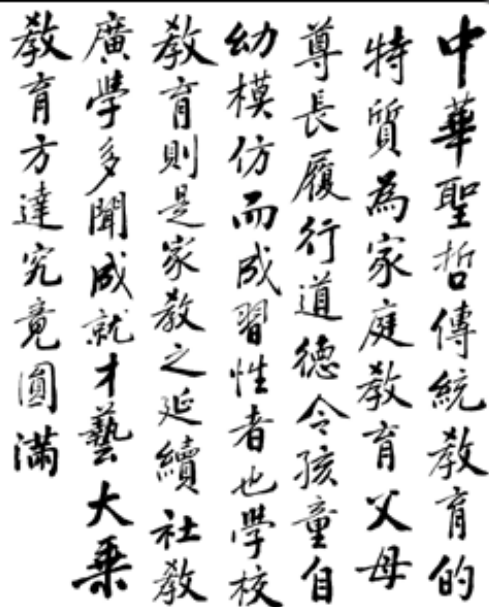 中華聖哲傳統教育的
特質為家庭教育父母
尊長履行道德令孩童自
幼模仿而成習性者也學校
教育則是家教之延續社教
廣學多聞成就才藝大乘
教育方達究竟圓滿